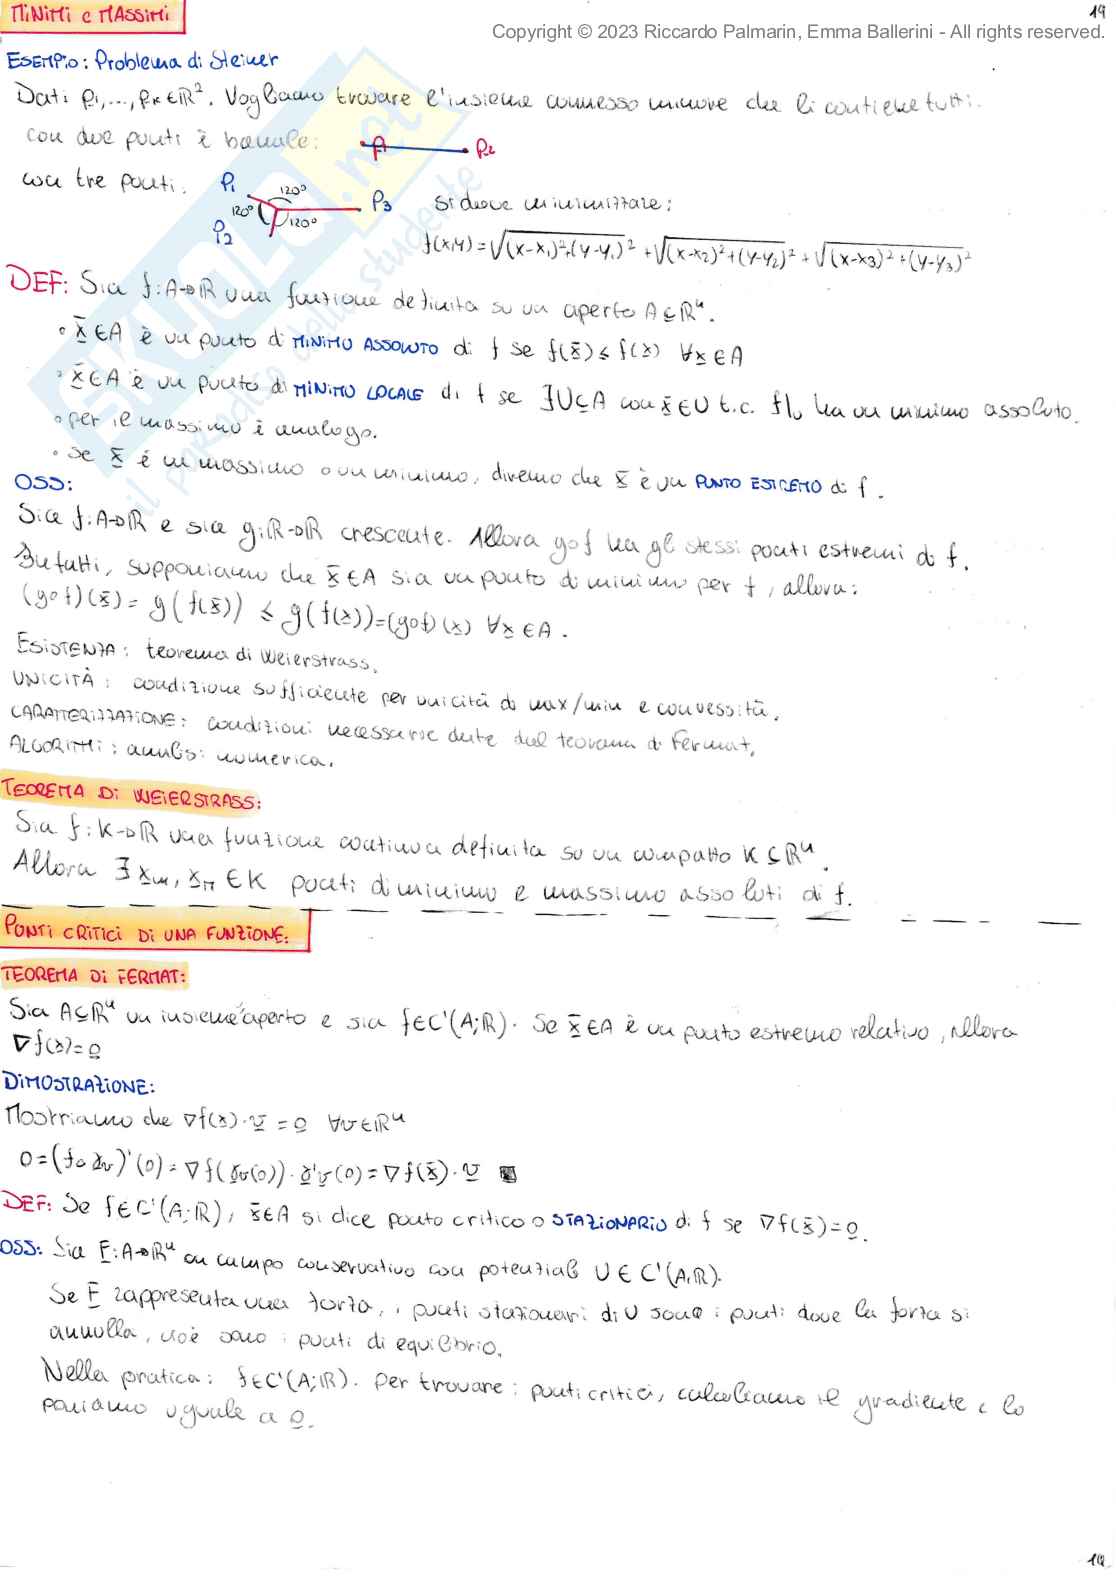 MINIMI e MASSIMI
19
Copyright © 2023 Riccardo Palmarin, Emma Ballerini - All rights reserved.
ESEMPIO: Problema di Steiner
Dati p₁,...,pₖ∈ℝ². Vogliamo trovare l'insieme connesso minore che li contiene tutti.
con due punti è banale: P₁ P₂
con tre punti: P₁ P₂ P₃ 120° 120° 120° Si deve minimizzare:
f(x,y)=√(x-x₁)²+(y-y₁)² + √(x-x₂)²+(y-y₂)² + √(x-x₃)²+(y-y₃)²
DEF: Sia f:A→ℝ una funzione definita su un aperto A⊆ℝⁿ.
• x̄∈A è un punto di MINIMO ASSOLUTO di f se f(x̄)≤f(x) ∀x∈A
• x̄∈A è un punto di MINIMO LOCALE di f se ∃U⊆A con x̄∈U t.c. f|ᵤ ha un minimo assoluto.
• per il massimo è analogo.
• Se x̄ è un massimo o un minimo, diremo che x̄ è un PUNTO ESTREMO di f.
OSS:
Sia f:A→ℝ e sia g:ℝ→ℝ crescente. Allora g∘f ha gli stessi punti estremi di f.
Infatti, supponiamo che x̄∈A sia un punto di minimo per f, allora:
(g∘f)(x̄)=g(f(x̄))≤g(f(x))=(g∘f)(x) ∀x∈A.
ESISTENZA: teorema di Weierstrass.
UNICITÀ: condizione sufficiente per unicità di max/min è convessità.
CARATTERIZZAZIONE: condizioni necessarie date dal teorema di Fermat.
ALGORITMI: analisi numerica.
TEOREMA DI WEIERSTRASS:
Sia f:K→ℝ una funzione continua definita su un compatto K⊆ℝⁿ.
Allora ∃ xₘ, x_M ∈K punti di minimo e massimo assoluti di f.
PUNTI CRITICI DI UNA FUNZIONE:
TEOREMA DI FERMAT:
Sia A⊆ℝⁿ un insieme aperto e sia f∈C¹(A;ℝ). Se x̄∈A è un punto estremo relativo, allora
∇f(x)=0
DIMOSTRAZIONE:
Mostriamo che ∇f(x̄)·v=0 ∀v∈ℝⁿ
0=(f∘γᵥ)'(0)=∇f(γᵥ(0))·γ'ᵥ(0)=∇f(x̄)·v ■
DEF: Se f∈C¹(A;ℝ), x̄∈A si dice punto critico o STAZIONARIO di f se ∇f(x̄)=0.
OSS: Sia F:A→ℝⁿ un campo conservativo con potenziale U∈C¹(A,ℝ).
Se F rappresenta una forza, i punti stazionari di U sono i punti dove la forza si
annulla, cioè sono i punti di equilibrio.
Nella pratica: f∈C¹(A;ℝ). Per trovare i punti critici, calcoliamo il gradiente e lo
poniamo uguale a 0.
19
SKUOLA.net
il paradiso dello studente